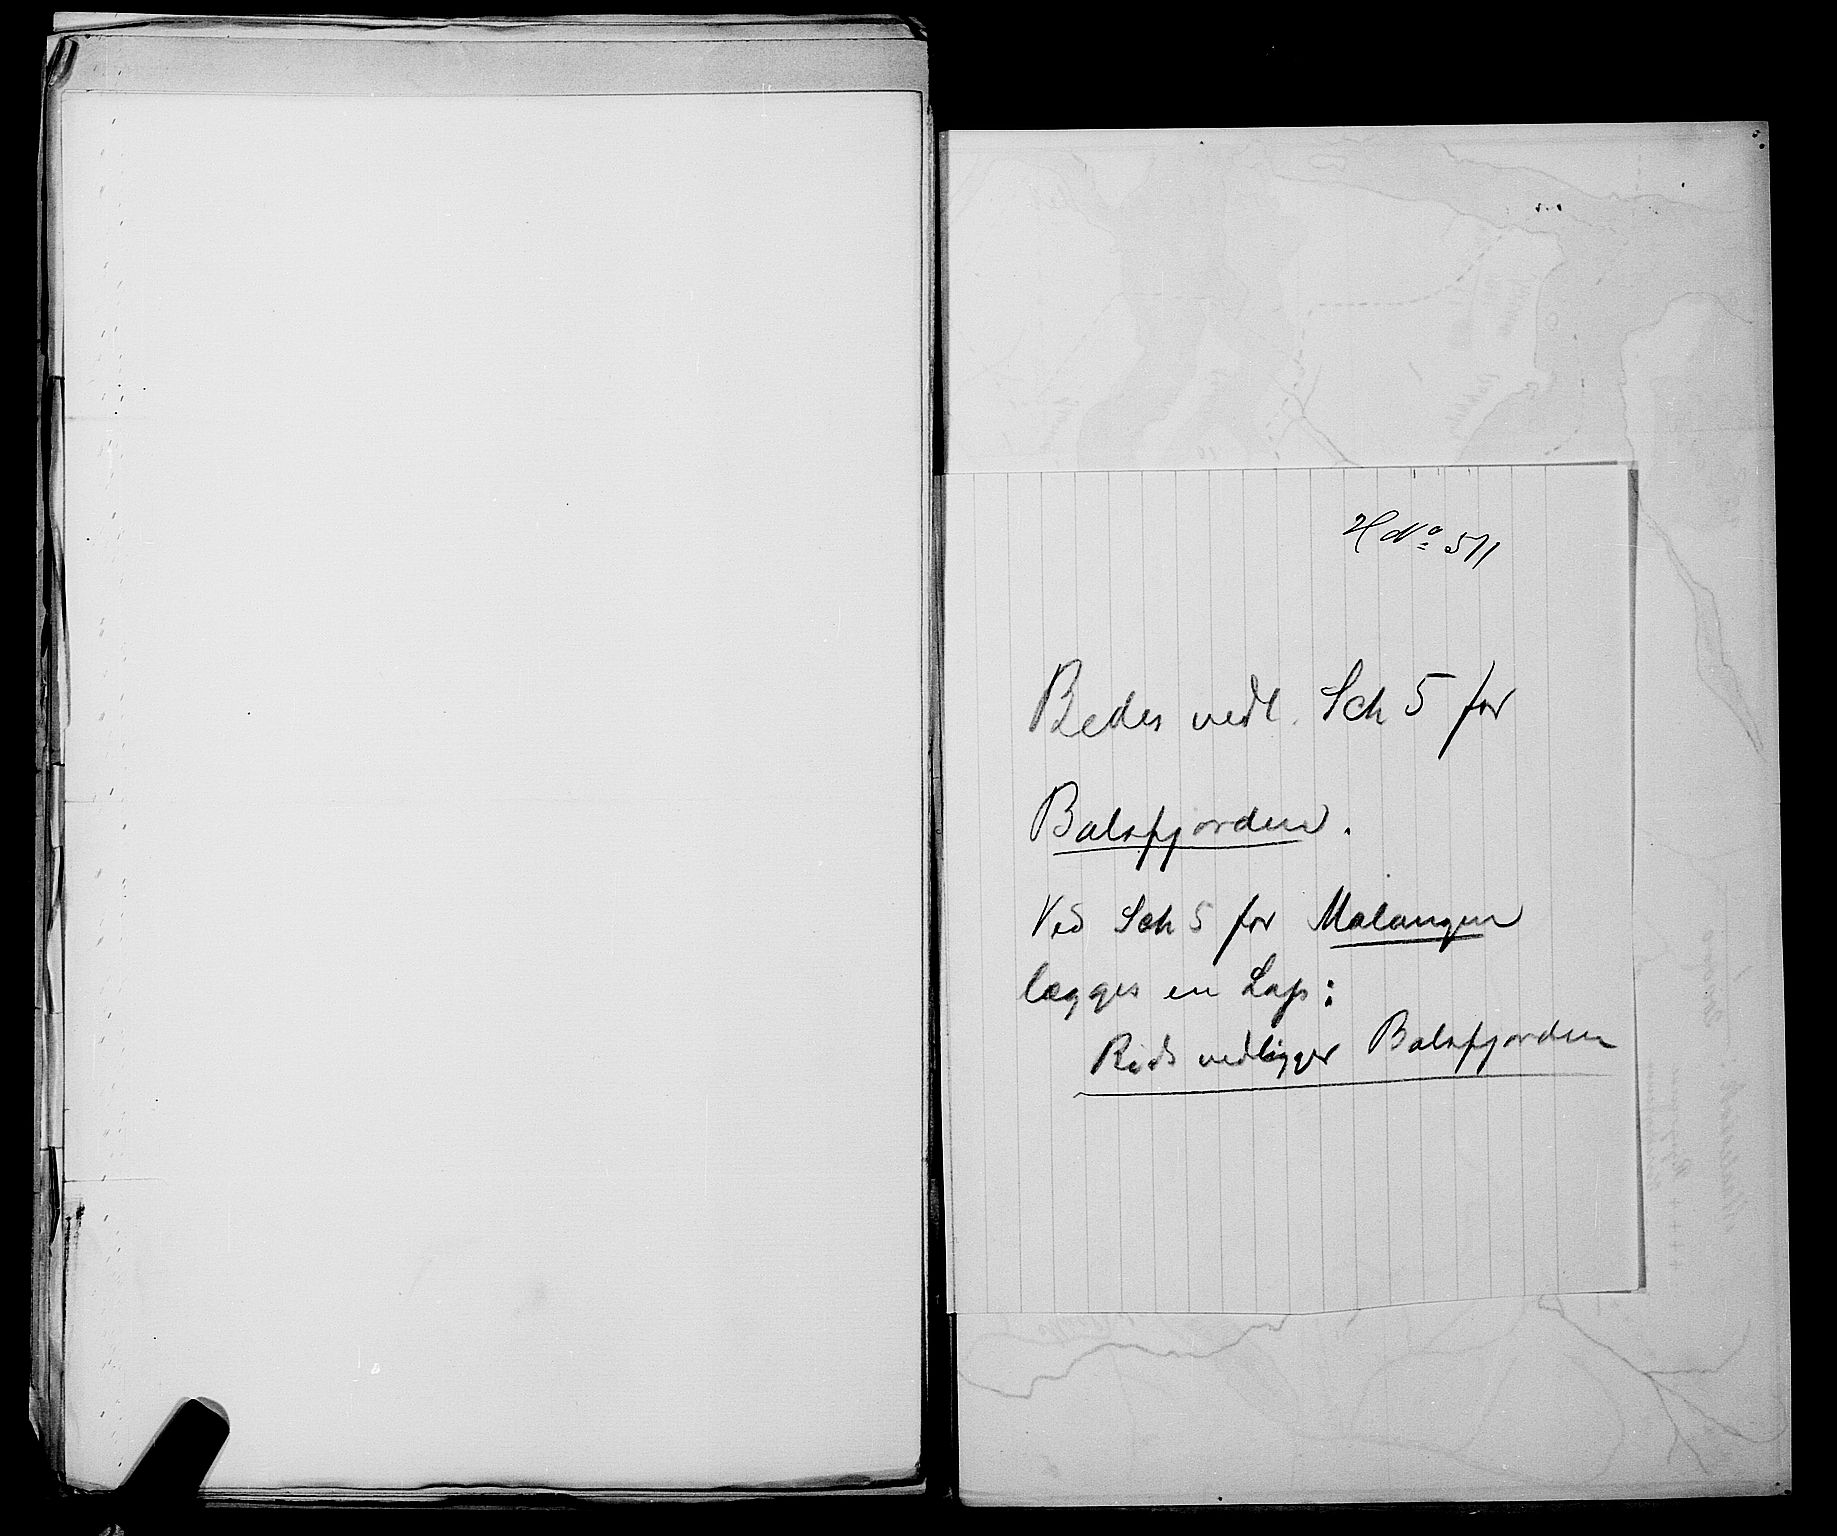 H No 511
Bedes vedl. Sch 5 for
Balsfjorden.
Ved Sch 5 for Malangen
lægges en Lap:
Rids vedligger Balsfjorden